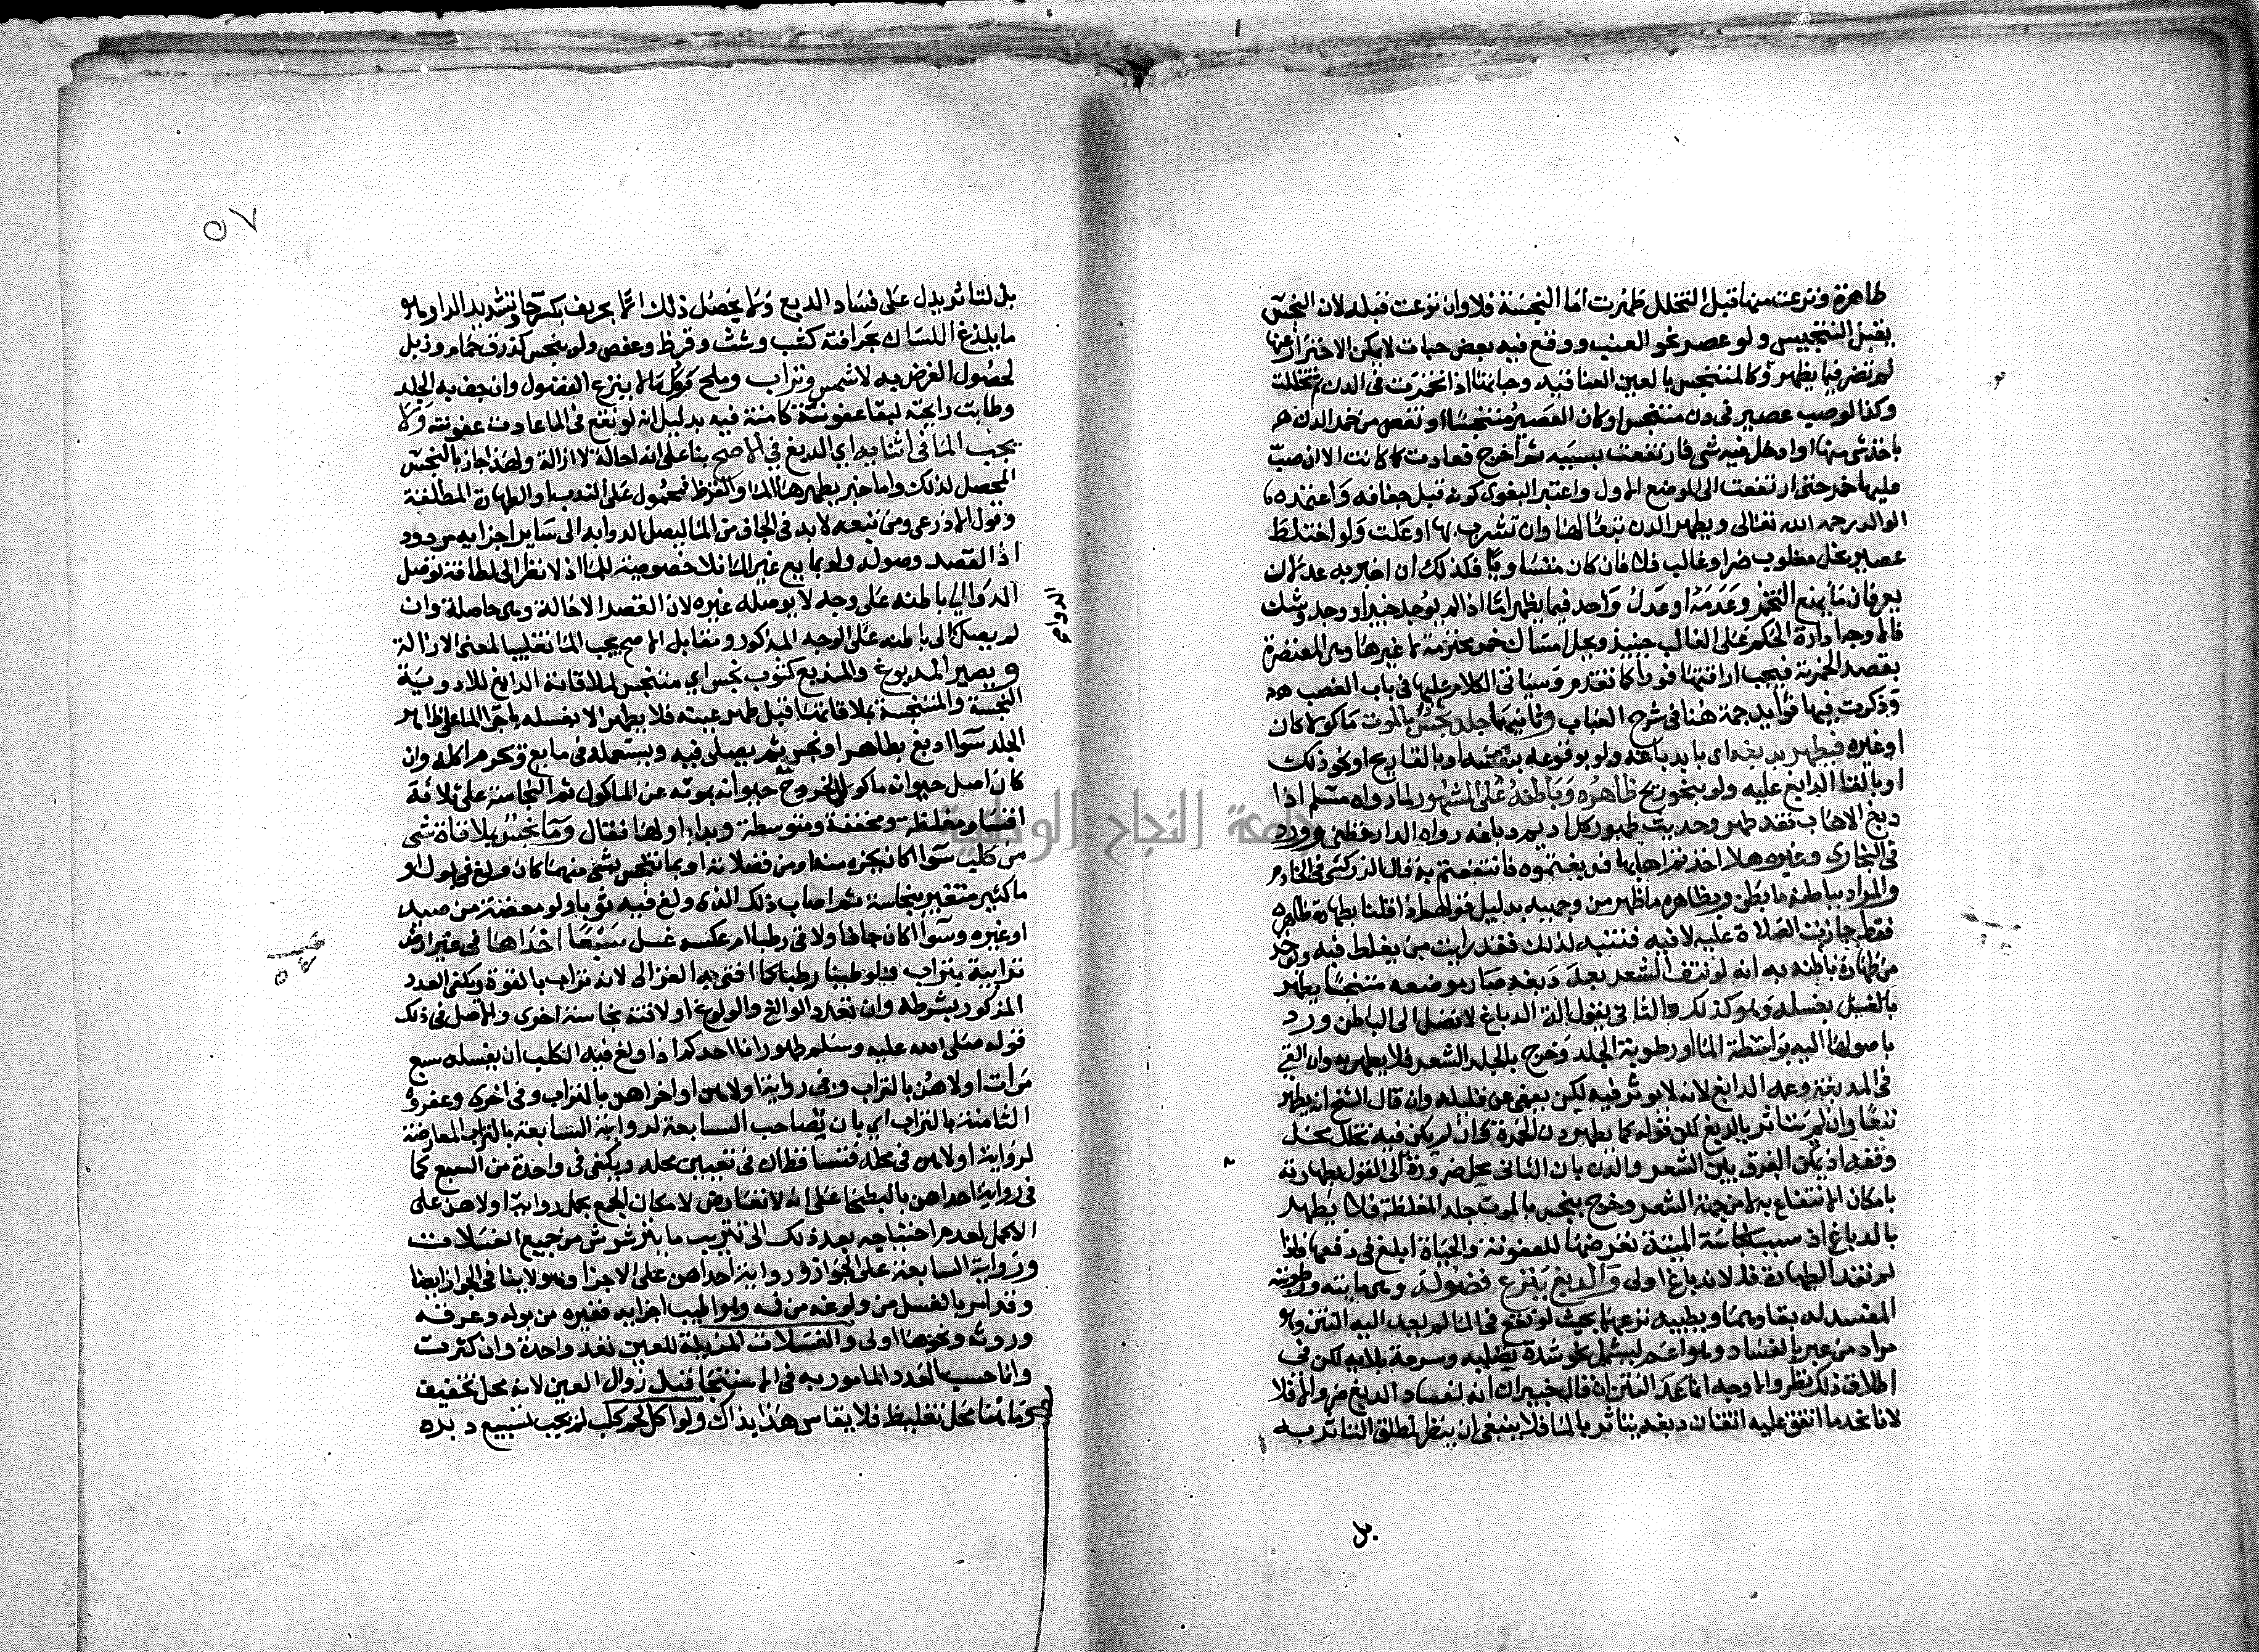 طاهرة ونزعت منها قبل التخلل طهرت اما النجسة فلا وان نوعت قبله لان النجس
يقبل التنجيس ولو عصر نحو العنب ووقع فيه بعض حبات لا يمكن الاحتراز عنها
لم تضر فيما يظهر وكالمتنجس بالعين العناقيد وحباتها اذا تخمرت في الدن ثم تخللت
وكذا لو صب عصير في دن متنجس او كان العصير متنجسا او نقص من خمر الدن
باخذ شي منها او ادخل فيه شي فارتفعت بسببه ثم اخرج فعادت كما كانت الا ان صب
عليها خمر حتى ارتفعت الى الموضع الاول واعتبر البغوي كونه قبل جفافه واعتمده
الوالد رحمه الله تعالى ويطهر الدن تبعا لها وان تشرب بها او غلت ولو اختلط
عصير بخل مغلوب ضر او غالب فلا فان كان متساويا فكذلك ان اخبر به عدلان
يعرفان ما يمنع التخمر وعدمه او عدل واحد فيما يظهر اما اذا لم يوجد خبير او وجد وشك
فالاوجه ادارة الحكم على الغالب حينئذ ويحل امساك خمر محترمة لا غيرها وهي المعتصرة
بقصد الخمرية فيجب اراقتها فورا كما تقدم وسياتي الكلام عليها في باب الغصب
وذكرت فيها فوايد جمة هنا في شرح العباب وثانيهما جلد نجس بالموت ماكولا كان
او غيره فيطهر بدبغه اي باندباغه ولو بوقوعه بنفسه او بالقا ريح او نحو ذلك
او بالقا الدابغ عليه ولو بنحو ريح ظاهره وباطنه على المشهور لما رواه مسلم اذا
دبغ الاهاب فقد طهر وحديث طهور كل اديم دباغه رواه الدارقطني وورد
في البخاري وغيره هلا اخذتم اهابها فدبغتموه فانتفعتم به قال الزركشي في الخادم
والمراد بباطنه ما بطن وبظاهره ما ظهر من وجهيه بدليل قولهم اذا قلنا بطهارة ظاهره
فقط جازت الصلاة عليه لا فيه فتنبه لذلك فقد رايت من يغلط فيه ويوخذ
من طهارة باطنه به انه لو نتف الشعر بعد دبغه صار موضعه متنجسا يطهر
بالغسل بغسله وهو كذلك والثاني يقول الة الدباغ لا تصل الى الباطن ورد
بوصولها اليه بواسطة الما او رطوبة الجلد وخرج بالجلد الشعر فلا يطهر به وان القي
في المدبغة وعمه الدابغ لانه لا يوثر فيه لكن يعفى عن قليله وان قال الشيخ انه يطهر
تبعا وان لم يتاثر بالدبغ كما يطهر دن الخمرة وان لم يكن فيه تخلل محل
وقفه اذ يمكن الفرق بين الشعر والدن بان الثاني محل ضرورة الى القول بطهارته
بامكان الانتفاع به لا من جهة الشعر وخرج بنجس بالموت جلد المغلظة فلا يطهر
بالدباغ اذ سبب نجاسة الميتة تعرضها للعفونة والحياة ابلغ في دفعها فاذا
لم تفد الطهارة فلا لان دباغ اولى والدبغ ينزع فضوله وهي مايته ورطوبته
المفسد له بقاوهما ويطيبه نزعهما بحيث لو نقع في الما لم يعد اليه النتن وهو
مراد من عبر بالفساد ولو اعم ليشمل نحو شدة تصلبه وسرعة بلايه لكن في
اطلاق ذلك نظر والاوجه انما عدا النتن ان قال خبيران انه لفساد الدبغ ضر والا فلا
لانا نجد ما اتفق عليه اتقان دبغه يتاثر بالما فلا ينبغي ان ينظر لمطلق التاثر به
بل
٥٧
بل لتاثر يدل على فساد الدبغ ولا يحصل ذلك انما بحريف بكسر حا وتشديد الرا وهو
ما يلذع اللسان بحرافته كشب وشث وقرظ وعفص ولو بنجس كذرق حمام وزبل
لحصول الغرض به لا شمس وتراب وملح وكل ما لا ينزع الفضول وان جف به الجلد
وطابت رايحته لبقا عفونته كامنة فيه بدليل انه لو نقع في الما عادت عفونته ولا
يجب الما في اثنايه اي الدبغ في الاصح بنا على انه احالة لا ازالة ولهذا جاز بالنجس
المحصل لذلك واما خبر يطهرها الما والقرظ فمحمول على الندب او الطهارة المطلقة
وقول الاذرعي ومن تبعه لا بد في الجاف من الما ليصل الدوا به الى ساير اجزايه مردود
اذ القصد وصوله ولو بمايع غير الما فلا خصوصية للما اذ لا نظر الى لطافته توصل
الدوا الى باطنه على وجه لا يوصله غيره لان القصد الاحالة وهي حاصلة وان
الدوا م
لم يصل الى باطنه على الوجه المذكور ومقابل الاصح يجب الما تغليبا لمعنى الازالة
ويصير المدبوغ والمندبغ كثوب نجس اي متنجس لملاقاته الدابغ للادوية
النجسة والمتنجسة بملاقاتها قبل طهر عينه فلا يطهر الا بغسله باجرا الما على ظاهر
الجلد سوا ادبغ بطاهر او نجس ثم يصلي فيه ويستعمله في مايع وتحرم اكله وان
كان اصل حيوانه ماكولا لخروج حيوانه بموته عن الماكول ثم النجاسة على ثلاثة
اقسام مغلظة ومخففة ومتوسطة وبدا باولها فقال وما نجس بملاقاة شي
من كلب سوا اكان بجزء منه او من فضلاته او بما تنجس بشي منهما كان ولغ في بول او
ما كثير متغير بنجاسة ثم اصاب ذلك الذي ولغ فيه ثوبا ولو معضة من صيد
او غيره وسوا اكان جافا ولاقى رطبا ام عكسه غسل سبعا احداها في غير ارض
ترابية بتراب ولو طينا رطبا كما افتى به الغزالي لانه تراب بالقوة ويكفي العدد
المذكور بشرطه وان تعدد الوالغ والولوغ او لاقته نجاسة اخرى والاصل في ذلك
قوله صلى الله عليه وسلم طهور انا احدكم اذا ولغ فيه الكلب ان يغسله سبع
مرات اولاهن بالتراب وفي رواية اولاهن او اخراهن بالتراب وفي اخرى وعفروه
الثامنة بالتراب اي بان يصاحب السابعة لرواية السابعة بالتراب المعارضة
لرواية اولاهن في محله فتتساقطان في تعيين محله ويكفي في واحدة من السبع كما
في رواية احداهن بالبطحا على انه لا تعارض لامكان الجمع بحمل رواية اولاهن على
الاكمل لعدم احتياجه بعد ذلك الى تتريب ما يترشرش من جميع الغسلات
ورواية السابعة على الجواز ورواية احداهن على الاجزا وهو لا ينافي الجواز ايضا
وقد امر بالغسل من ولوغه من فمه وهو اطيب اجزايه فغيره من بوله وعرقه
وروثه ونحوها اولى والغسلات المزيلة للعين تعد واحدة وان كثرت
وانما حسب العدد المامور به في الاستنجا قبل زوال العين لانه محل تخفيف
وما هنا محل تغليظ فلا يقاس هذا بذاك ولو اكل لحم كلب لم يجب تسبيع دبره
جامعة النجاح الوطنية